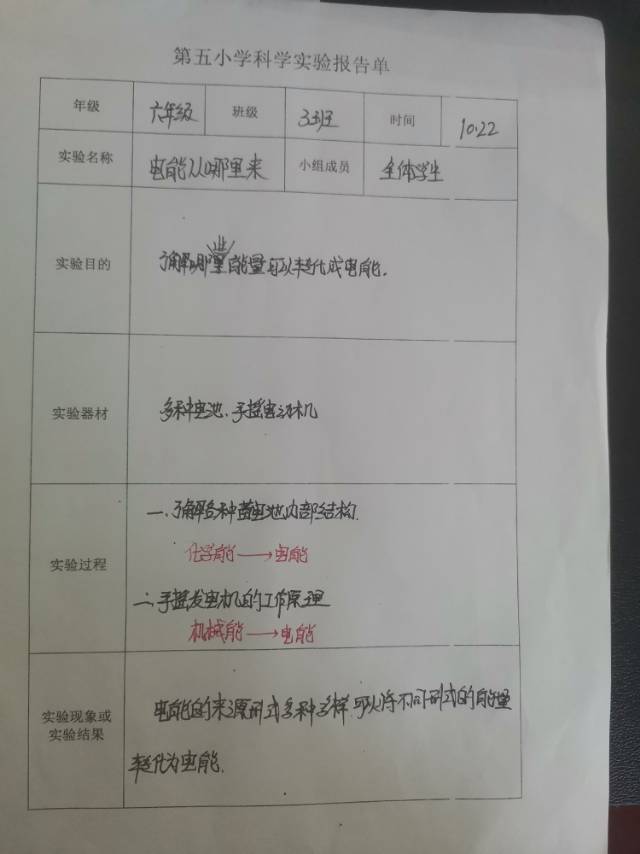 第五小学科学实验报告单
年级 六年级 班级 3班 时间 10.22
实验名称 电能从哪里来 小组成员 全体学生
实验目的 了解哪里能量可以转化成电能.
实验器材 多种电池、手摇电动机
实验过程
一、了解各种蓄电池内部结构.
化学能→电能
二、手摇发电机的工作原理
机械能→电能
实验现象或
实验结果
电能的来源形式多种多样,可以将不同形式的能量
转化为电能.